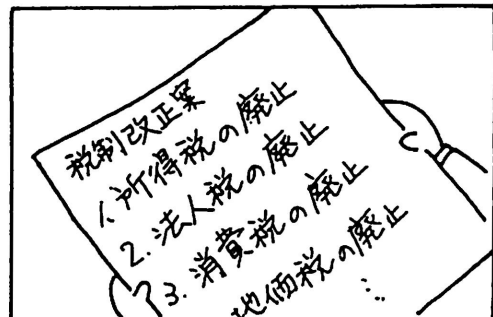 税制改正案
1、所得税の廃止
2.法人税の廃止
3.消費税の廃止
地価税の廃止
⋮